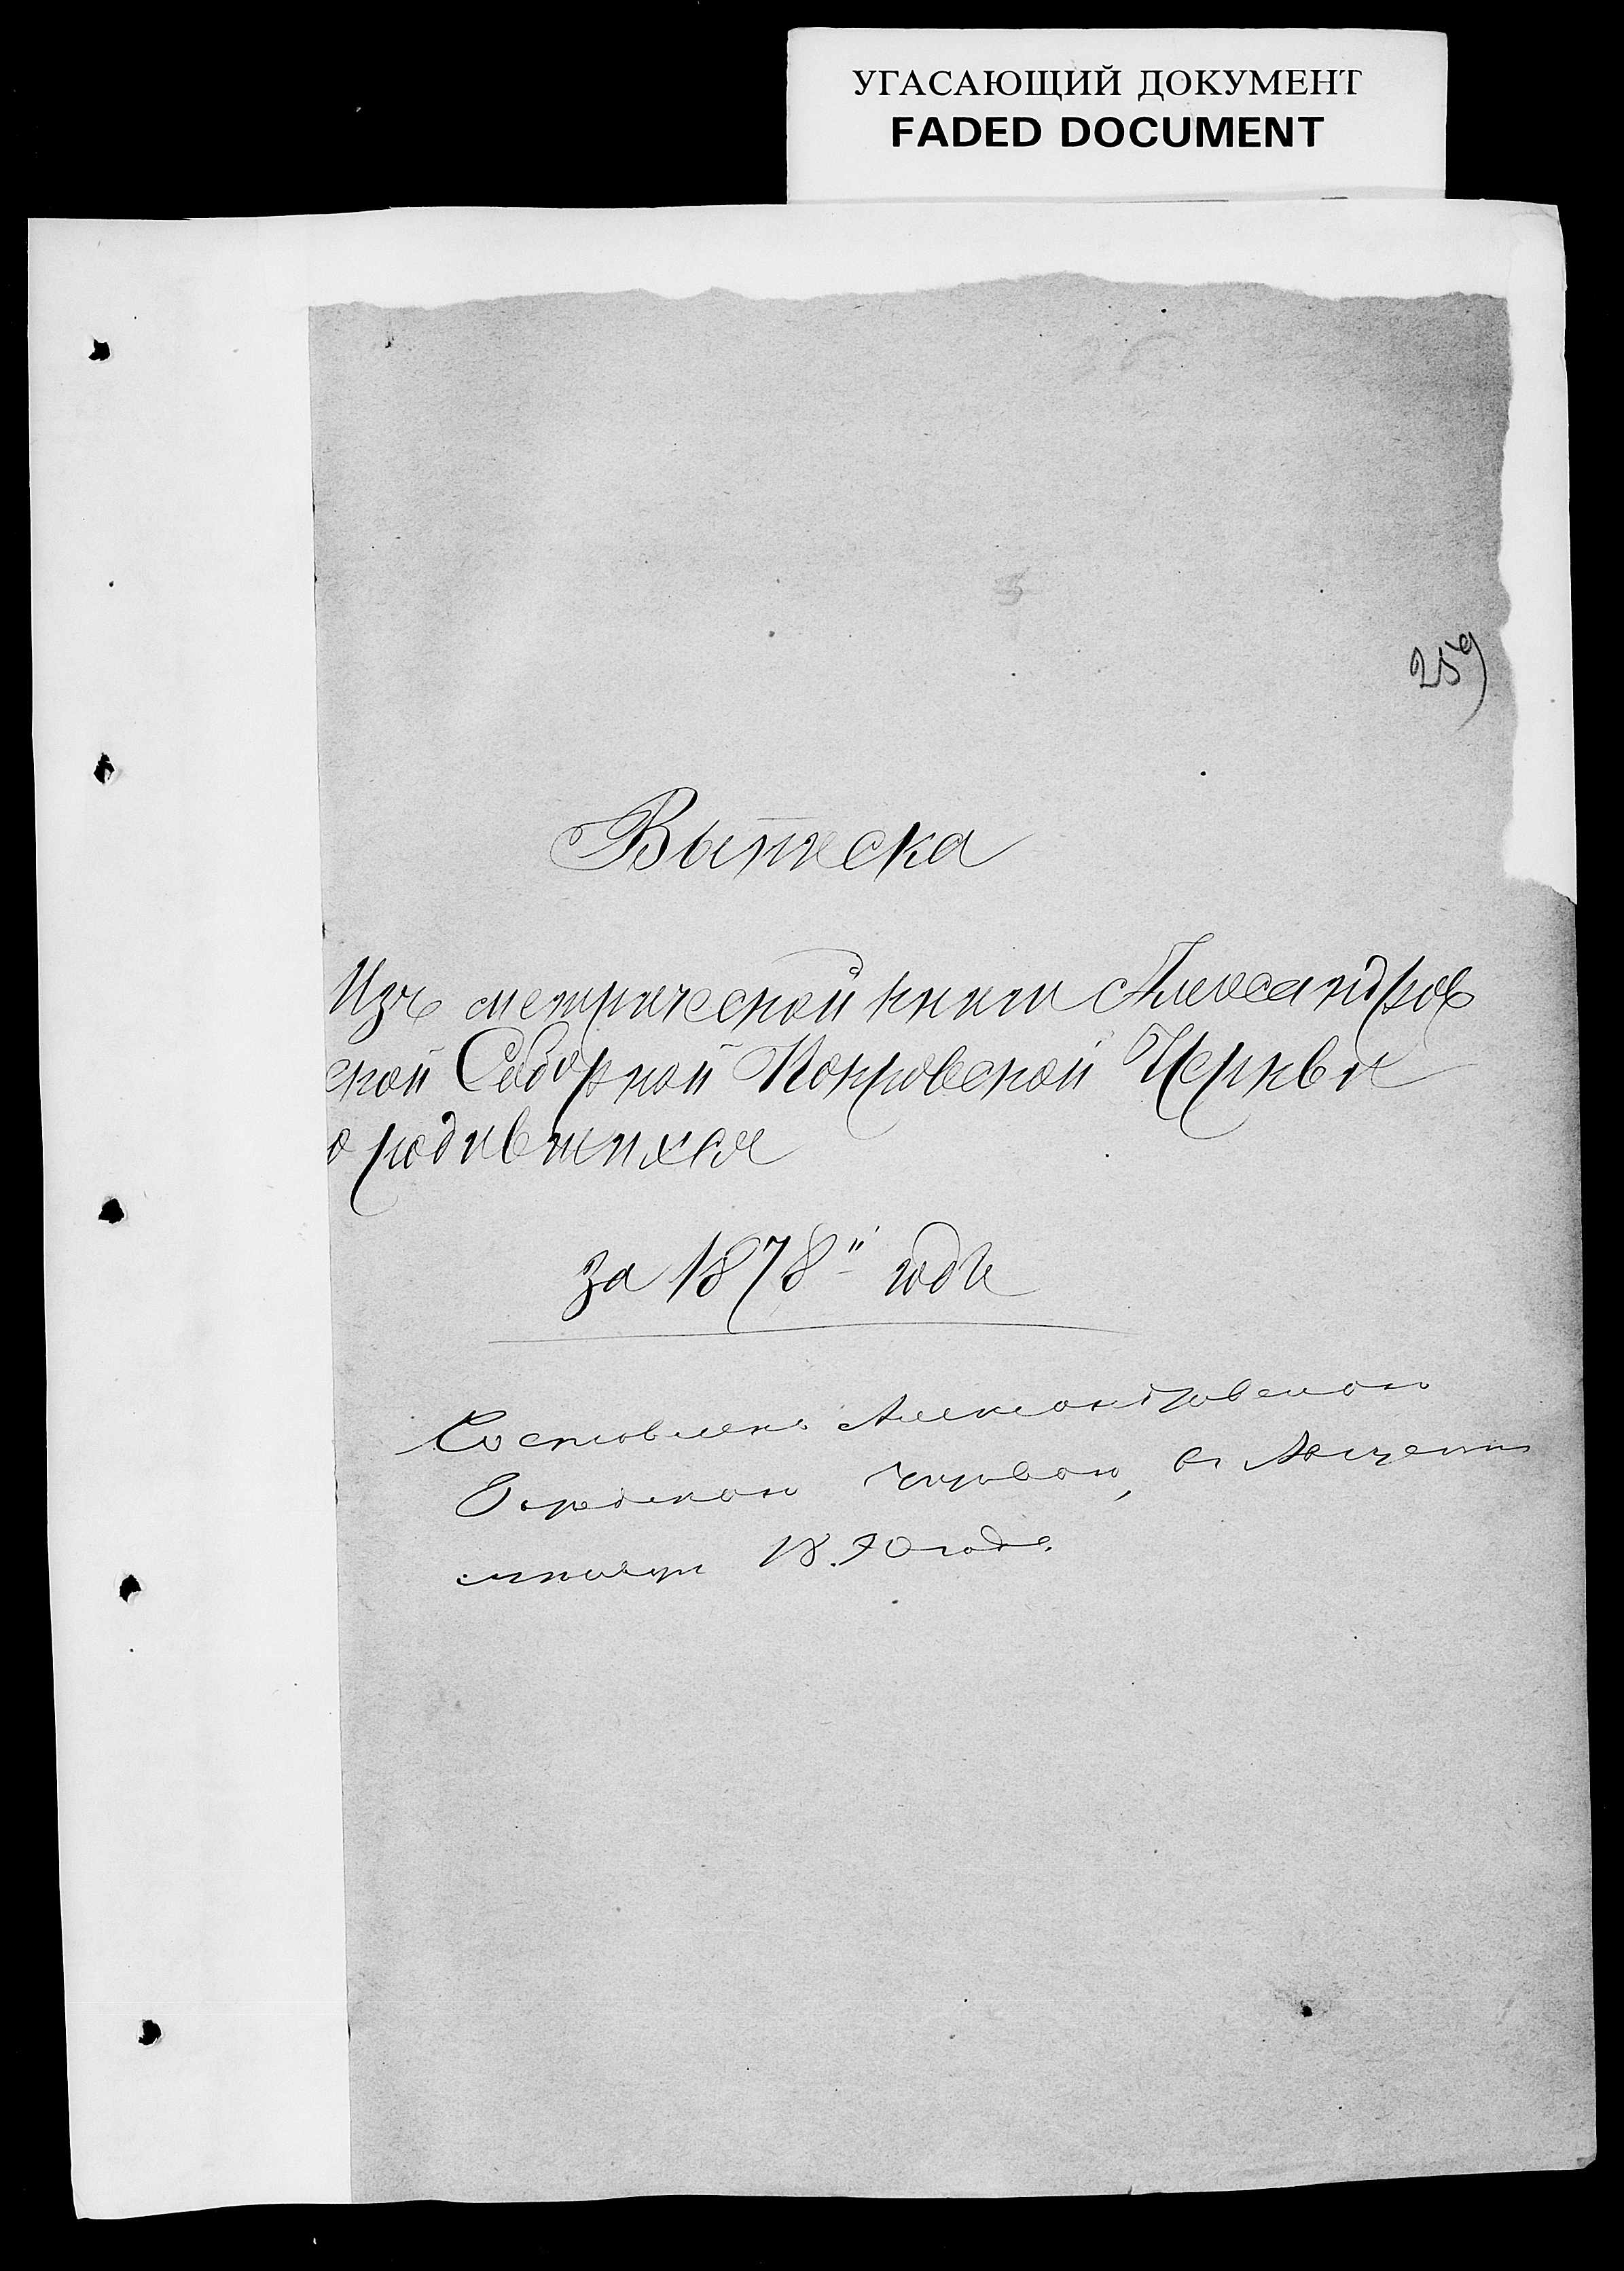 УГАСАЮЩИЙ ДОКУМЕНТ
FADED DOCUMENT
259
Выписка
Изъ метрической книги Александров
ской Соборной Покровской Церкви
о родившихся
за 1878й годъ
Составлена Александровскою
Городскою Управою, въ Августѣ
мѣсяцѣ 1890 года.